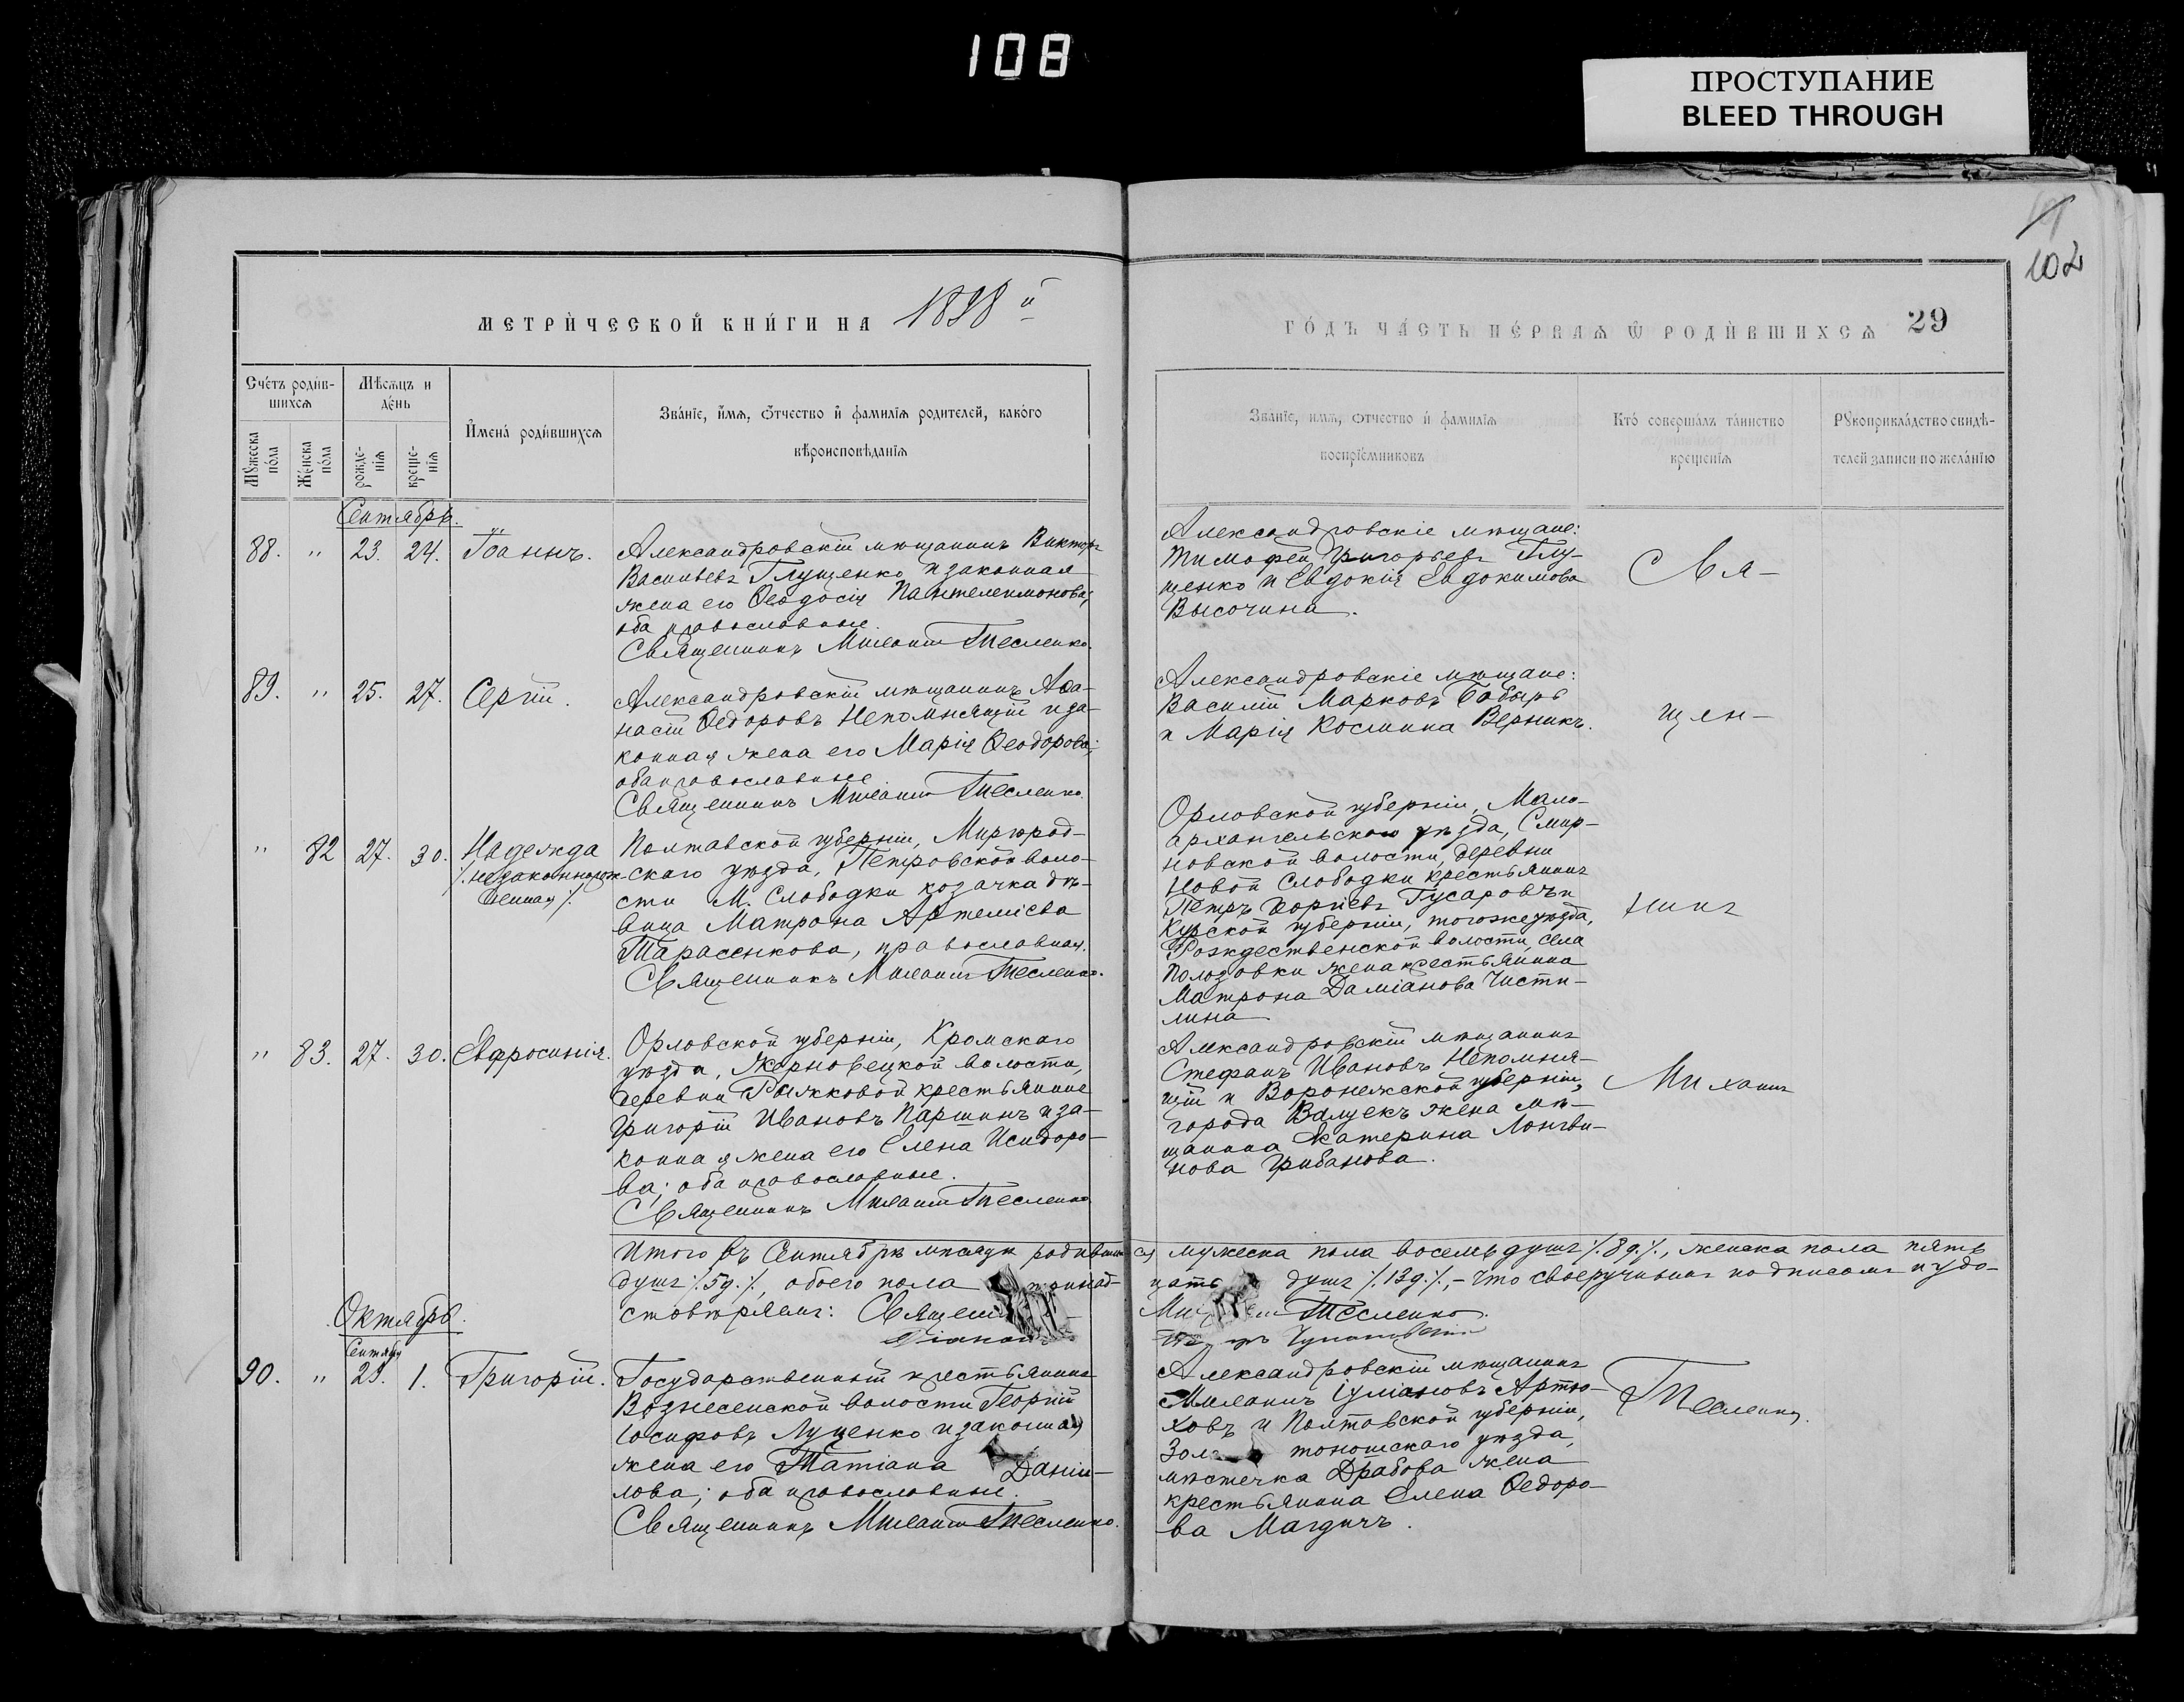 108
ПРОСТУПАНИЕ
BLEED THROUGH
102
МЕТРИ́ЧЕСКОЙ КНИ́ГИ НА 1898 й
ГО́ДЪ ЧА́СТЬ ПЕ́РВАѦ Ѡ РОДИ́ВШИХСѦ 29
Сче́тъ роди́в-
шихсѧ
Мѣ́сѧцъ и
де́нь
И҆мена̀ роди́вшихсѧ
Зва́нїе, и҆́мѧ, ѻ҆́тчество и҆ фамилїѧ родителей, како́го
вѣроисповѣ́данїѧ
Мꙋ́жеска по́ла
Же́нска по́ла
рожде-
нїѧ
креще-
нїѧ
Зва́нїе, имѧ, ѻтчество и҆ фамилїѧ
воспрїе́мниковъ
Кто̀ соверша́лъ та́инство
креще́нїѧ
Рꙋкоприкла́дство свидѣ́-
телей записи по жела́нїю
Сентябрь.
88. " 23. 24. Іоаннъ.
Александровскій мѣщанинъ Викторъ
Васильевъ Глущенко и законная
жена его Ѳеодосія Пантелеимонова;
оба православные.
Священникъ Михаилъ Тесленко.
Александровскіе мѣщане:
Тимофей Григорьевъ Глу-
щенко и Евдокія Евдокимова
Высочина.
Свя-
89. " 25. 27. Сергій.
Александровскій мѣщанинъ Аѳа-
насій Ѳедоровъ Непомнящій и за-
конная жена его Марія Ѳеодорова;
оба православные.
Священникъ Михаилъ Тесленко.
Александровскіе мѣщане:
Василій Марковъ Бобырь
и Марія Космина Верникъ.
щен-
" 82 27. 30. Надежда
/. незаконнорож-
денная /.
Полтавской губерніи, Миргород-
скаго уѣзда, Петровской воло-
сти М. Слободки козачка дѣ-
вица Матрона Артеміева
Тарасенкова, православная.
Священникъ Михаилъ Тесленко.
Орловской губерніи, Мало-
архангельскаго уѣзда, Смир-
новской волости, деревни
Новой Слободки крестьянинъ
Петръ Гусаровъ и
Курской губерніи, тогоже уѣзда,
Рождественской волости, села
Полозовки жена крестьянина
Матрона Даміанова Чисти-
лина
никъ
" 83. 27. 30. Евфросинія.
Орловской губерніи, Кромскаго
уѣзда, Жерновецкой волости,
деревни Рыжковой крестьянинъ
Григорій Ивановъ Паршинъ и за-
конная жена его Елена Исидоро-
ва; оба православные.
Священникъ Михаилъ Тесленко.
Александровскій мѣщанинъ
Стефанъ Ивановъ Непомня-
щій и Воронежской губерніи,
города Валуекъ жена мѣ-
щанина Екатерина Лонгви-
нова Грибанова.
Михаилъ
Итого въ Сентябрѣ мѣсяцѣ родившихся мужеска пола восемь душъ /. 8 д. /., женска пола пять
душъ /. 5 д. /., обоего пола тринад-цать душъ /. 13 д. /., – что своеручнымъ подписомъ и удо-
стовѣряемъ:
Тесленко.
Октябрь.
Сентябр
90. " 29. 1. Григорій.
Государственный крестьянинъ
Вознесенской волости Георгій
Іосифовъ Луценко и законная
жена его Татіана Даніи-
лова; оба православные.
Священникъ Михаилъ Тесленко.
Александровскій мѣщанинъ
Михаилъ Іуліановъ Артю-
ховъ и Полтавской губерніи,
Золотоношскаго уѣзда,
мѣстечка Драбова жена
крестьянина Елена Ѳедоро-
ва Магдичъ.
Тесленко.